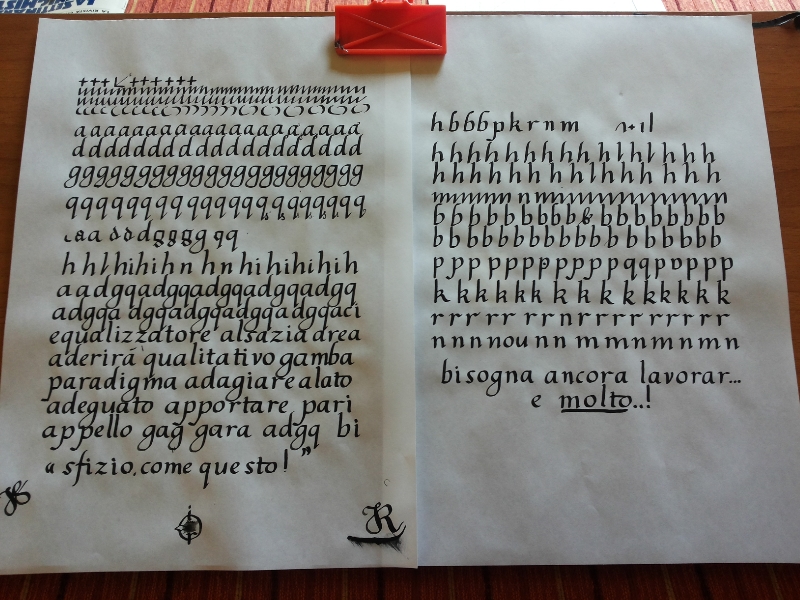 aaaaaaaaaaaaaaaaaaaa
dddddddddddddddddddd
gggggggggggggggggggg
qqqqqqqqqqqqqqqqqqqq
hhlhihihnhnhihihihih
aadgqadgqadgqadgqadgq
adgqadgqadgqadgqadgqaci
equalizzatore alsazia drea
aderirá qualitativo gamba
paradigma adagiare alato
adeguato apportare pari
appello gag gara adgq bi
“ sfizio, come questo! ”
R
hbbbpkrnm
hhhhhhhhhhlhlhhh
hhhhhhhhhlhhhhhh
bbbbbbbbbbbbbbbbbb
bbbbbbbbbbbbbbbb
ppppppppppqqpppp
kkkkkkkkkkkkkkk
rrrrrrrnrrrrrrrr
nnnnounnmmnmnmnmn
bisogna ancora lavorar...
e molto..!